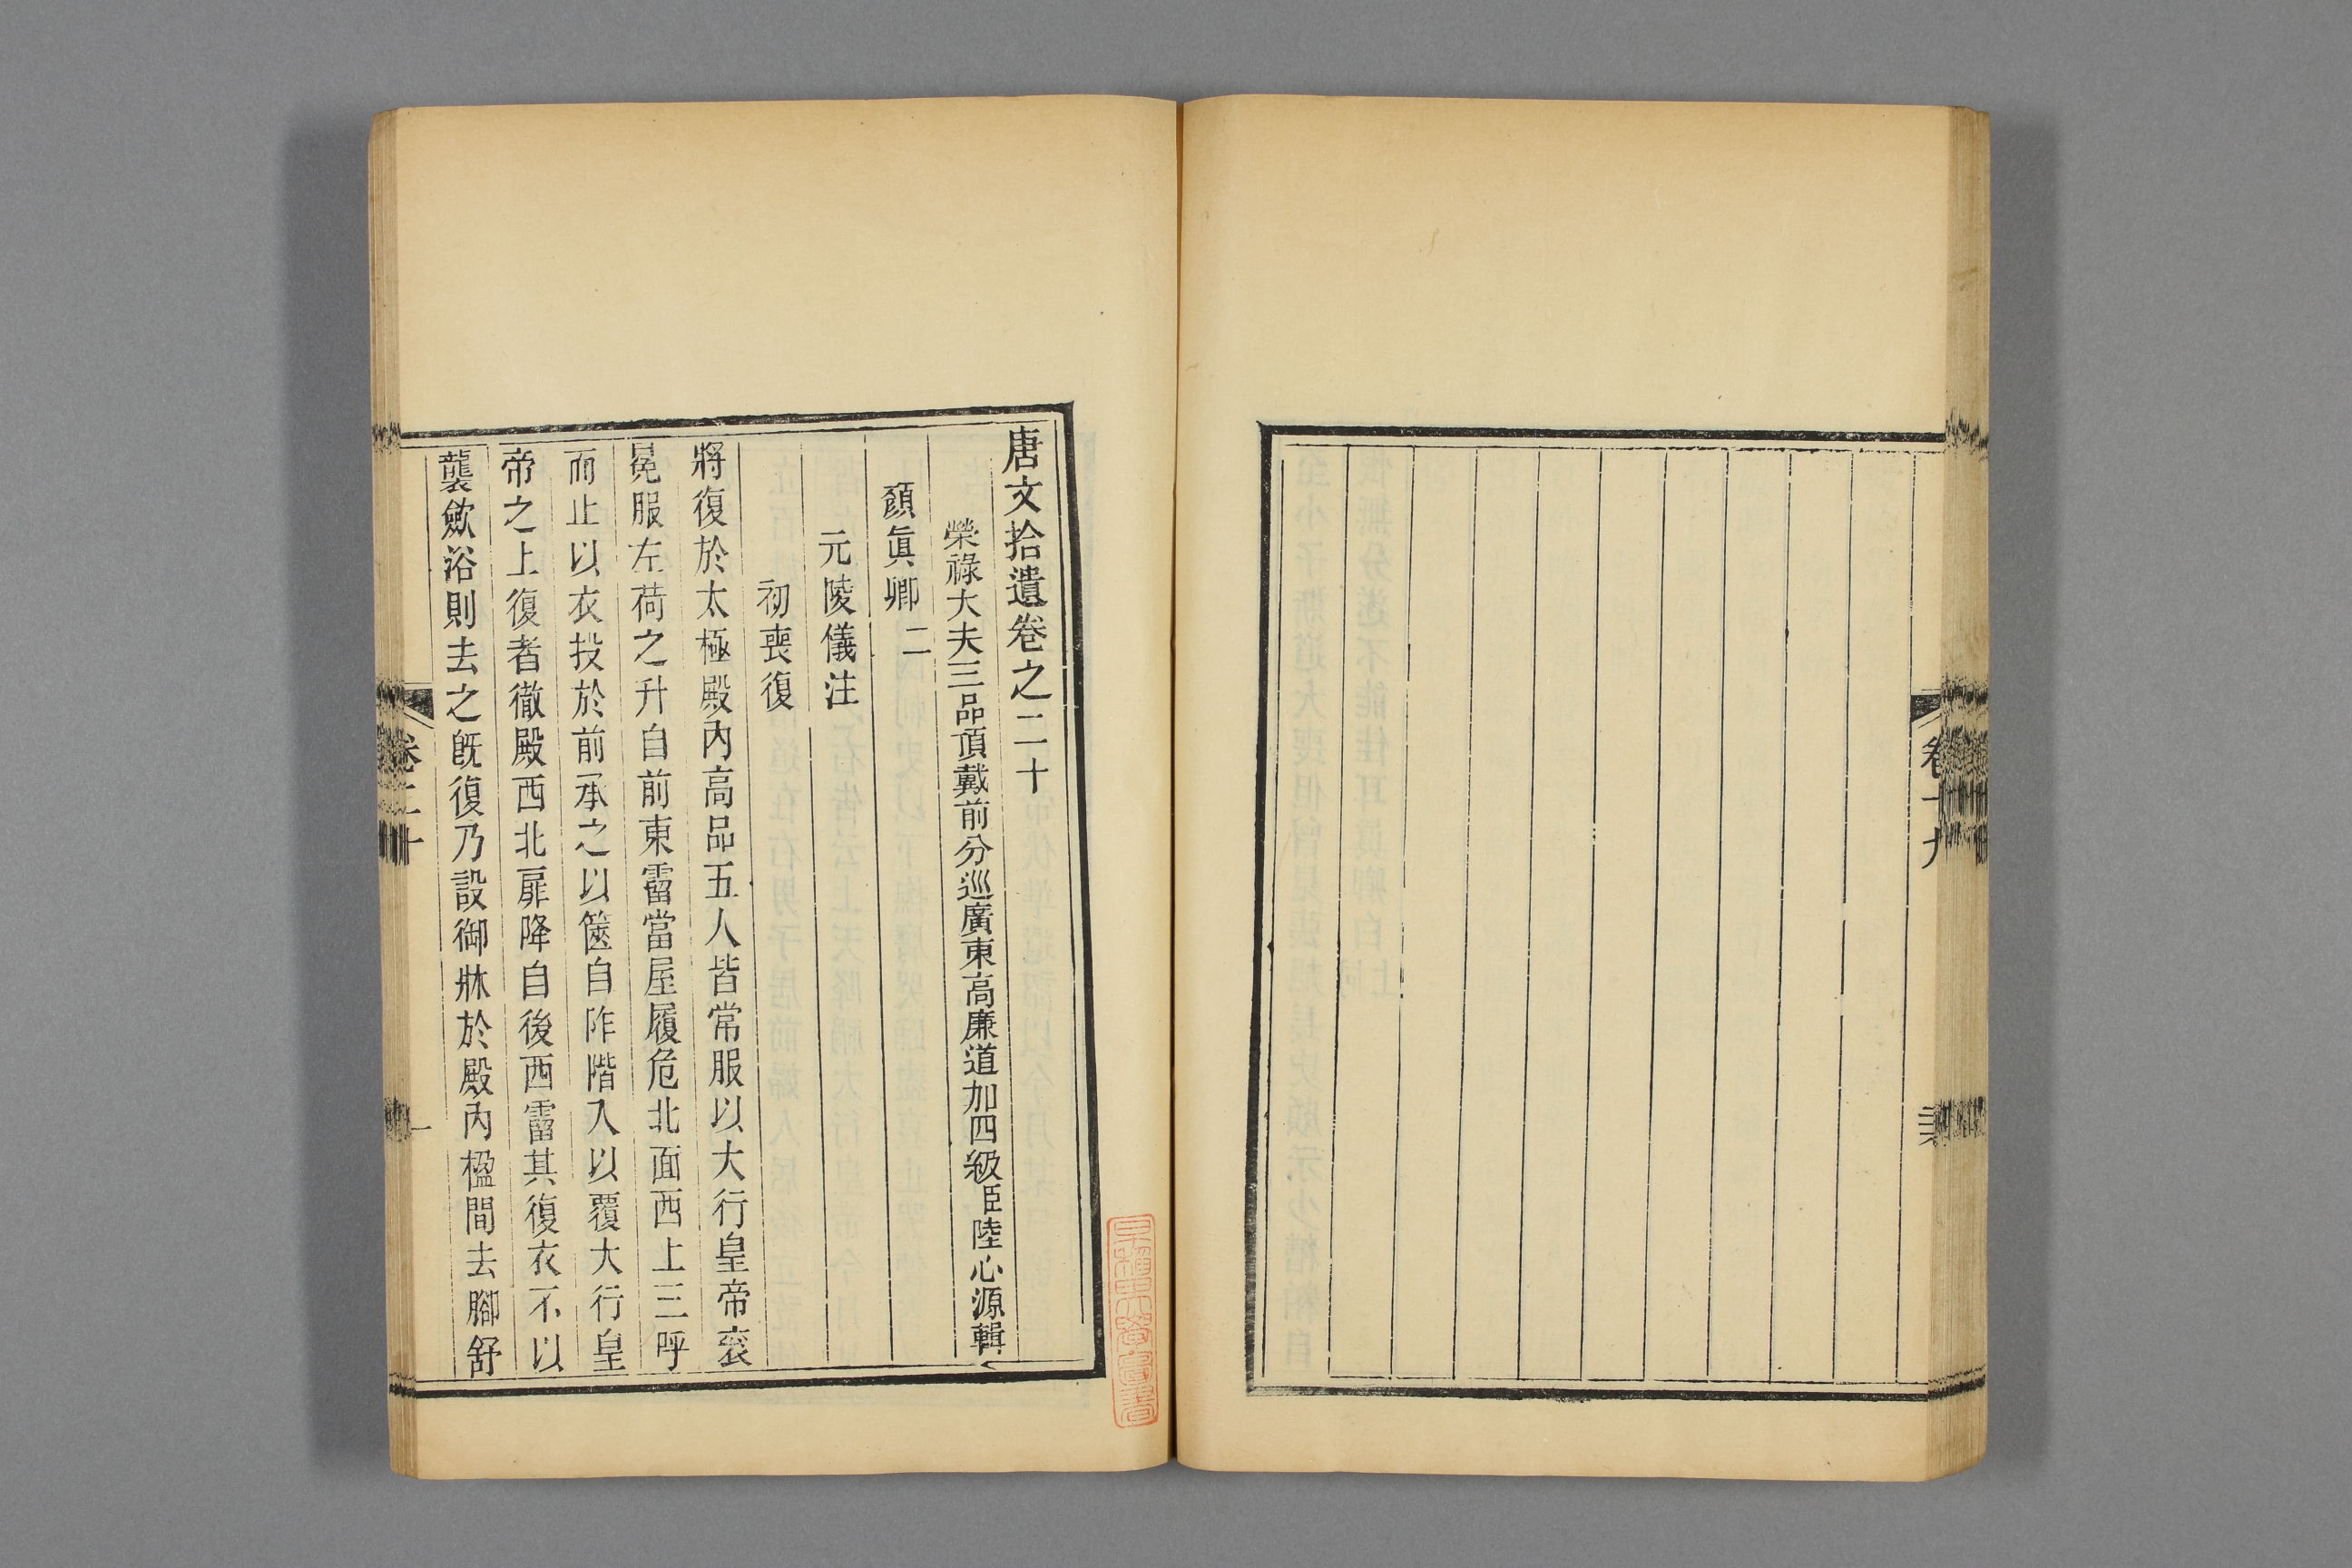 唐文拾遺卷之二十
榮祿大夫三品頂戴前分巡廣東高廉道加四級臣陸心源輯
顏眞卿二
元陵儀注
初喪復
將復於太極殿內高品五人皆常服以大行皇帝袞
冕服左荷之升自前東霤當屋履危北面西上三呼
而止以衣投於前承之以篋自阼階入以覆大行皇
帝之上復者徹殿西北扉降自後西霤其復衣不以
襲斂浴則去之旣復乃設御牀於殿內楹間去腳舒
卷二十
一
卷十九